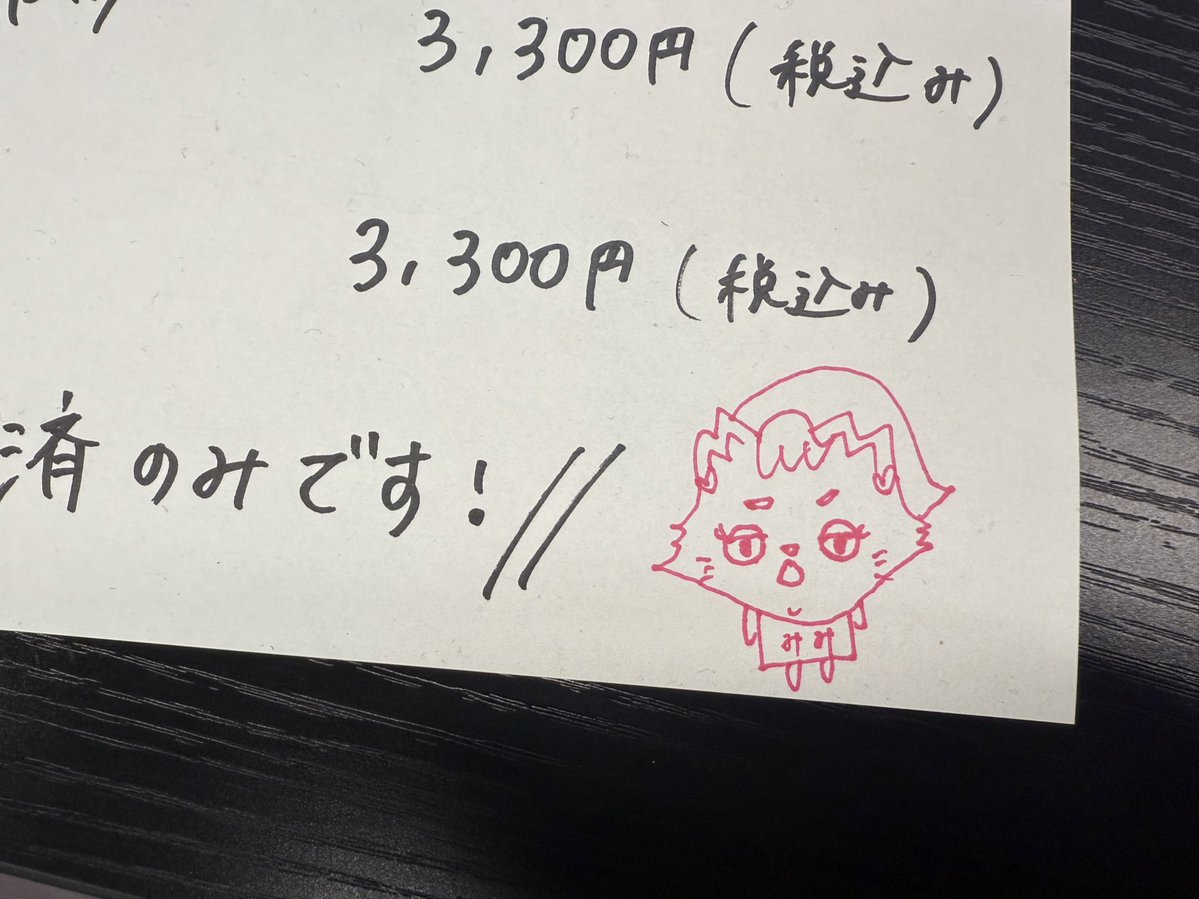 3,300円(税込み)
3,300円(税込み)
済のみです!//
みみ